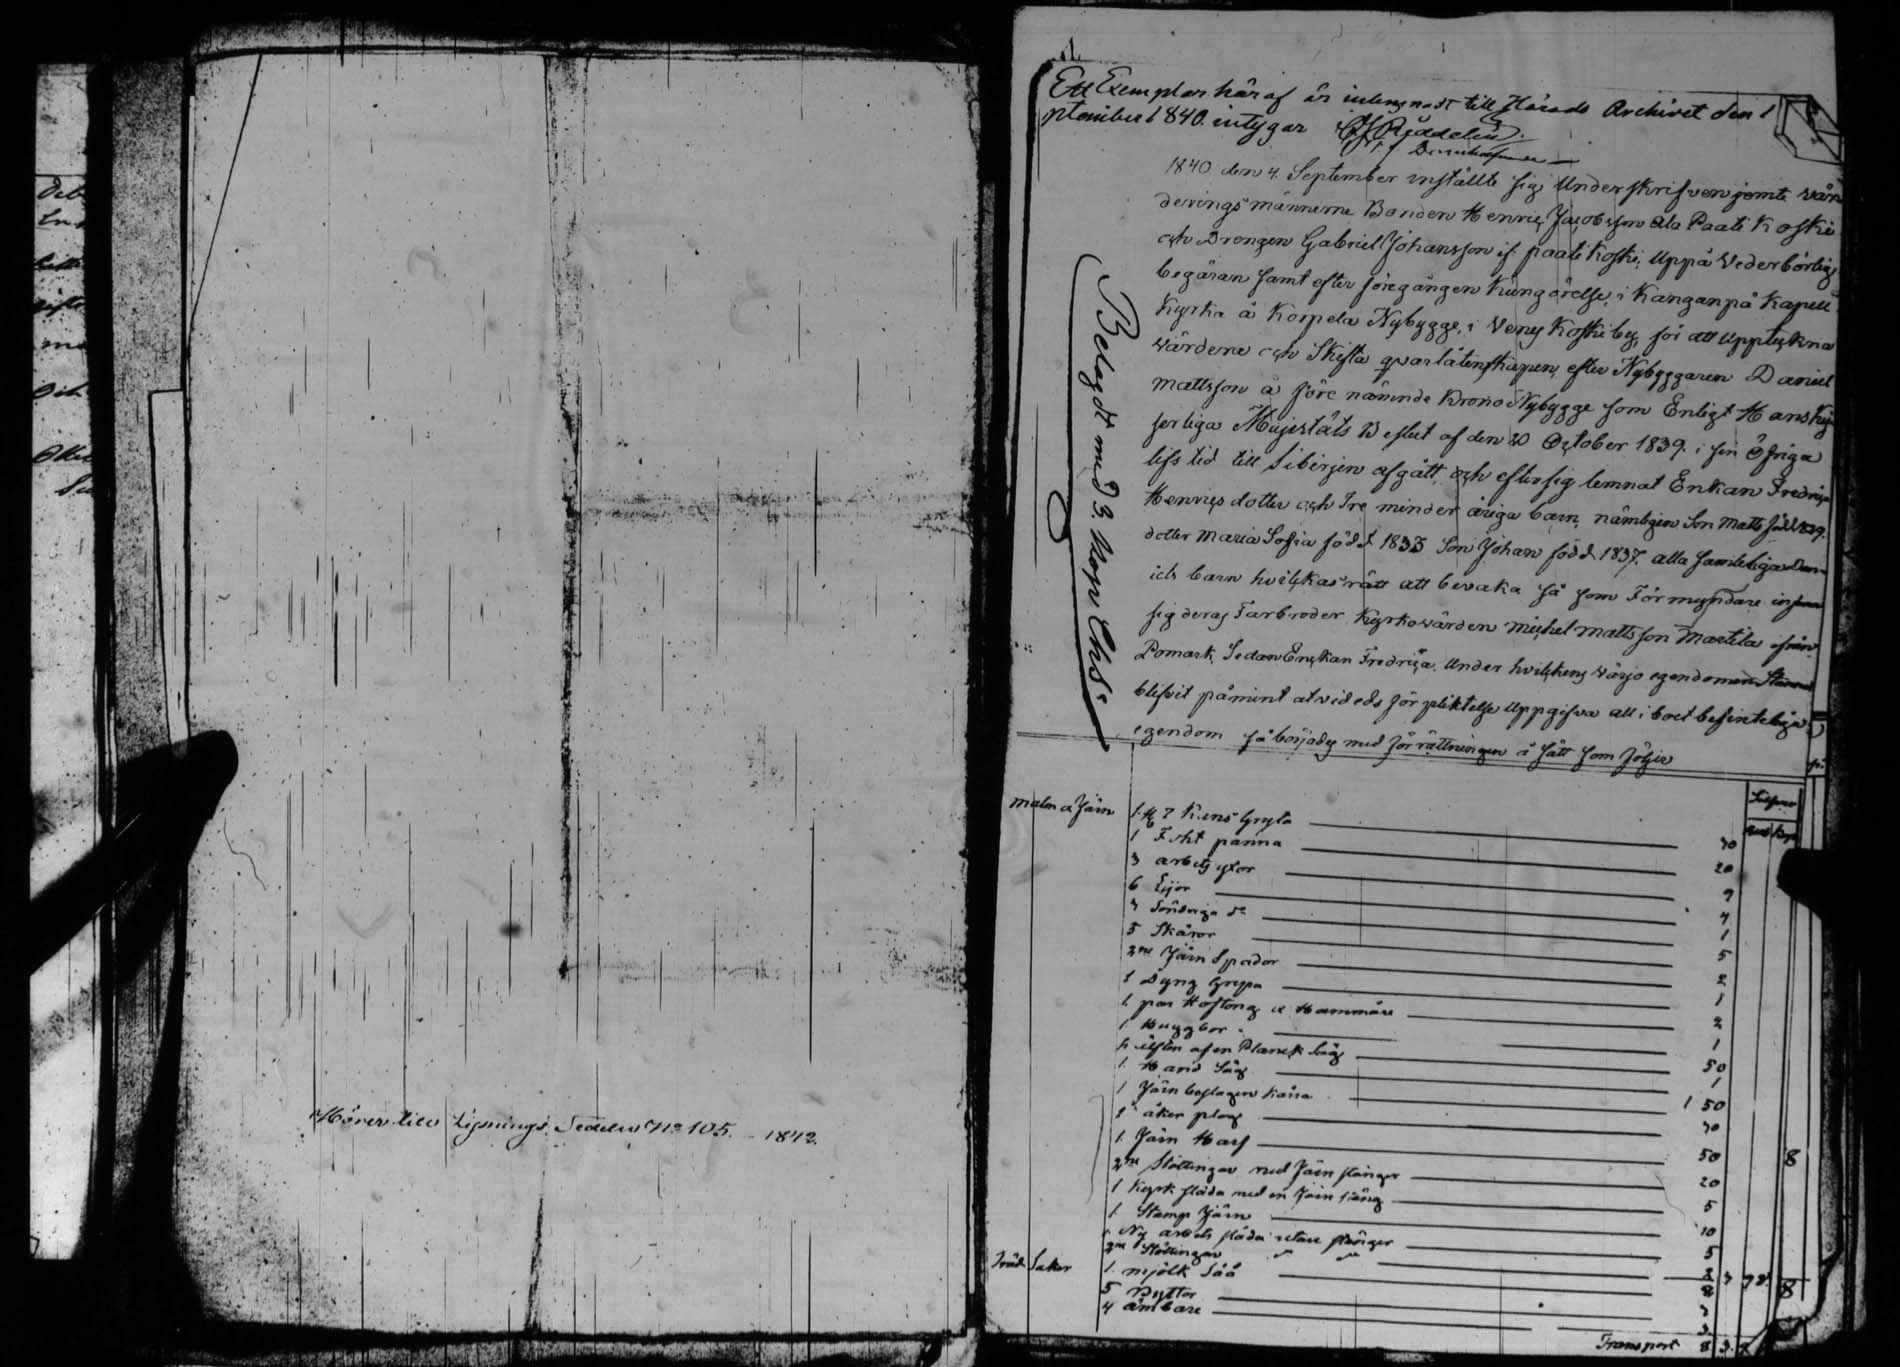 Hörer till Lignings Sedeln No 105. 1842.
Ett Exemplar häraf är inlemnadt till Härads Archivet den 1
ptember 1840. intygar
Domhafvande
1840 den 4. September inställte sig Underskrifven jemte vär
deringsmännerne Bonden Henric Jacobsson Ala Paati Koski
och Drongen Gabriel Johansson if. paati Koski, Uppå Vederbörlig
begäran samt efter föregången Kungörelse, i Kanganpå Kapell
Kyrka å Korpela Nybygge, i Veneskoski by, för att Uppteckna
värdera och Skifta qvarlåtenskapen, efter Nybyggaren Daniel
Mattsson å före nämnde Krono Nybygge som Enligt Hans Kej
serliga Majestäts Beslut af den 30 October 1839. i sin Öfriga
lifs tid till Siberien afgått, och efter sig lemnat Enkan Fredrica
Henricsdotter och Tre minder åriga barn, nämligen Son Matts född 1829.
dotter Maria Sofia född 1833 Son Johan född 1837. alla
barn hvilkas rätt att bevaka så som Förmyndare
sig deras Farbroder Kyrkovärden Michel Mattsson Martila ifrån
Pomark, Sedan Enckan Fredrica. Under hvilkens värjo egendomen
blifvit påmint at vid eds förpliktelse Uppgifva all i boet befinteliga
egendom så börjades med förrättningen å sätt som följer
Belagdt med 3. Kop Chs
Silfver
Rub Kop
Malm o Järn 1 Kens Gryta 70
1 panna 20
3 arbets yxor 9
6 Lijor 4
Söndriga do 1
5 Skäror 5
2ne Järn Spador 2
1 Dyng Grepa 1
1. par Hoftong o Hammare 2
1 Huggbor 1
hälften af en Planck Såg 50
1. Hand Såg 1
1 Järn beslagen Kärra 1 50
1 åker plog 70
1. Järn Harf 50 8
2ne Stöttingar med Järn stänger 20
1 Kyrk släda med en Järn stäng 5
1. Stamp Järn 10
Ny arbets släda utan stänger 5
2ne Stöttingar
Träd Saker 1. mjölk Såå
5 Byttor
4 ämbare
Transport